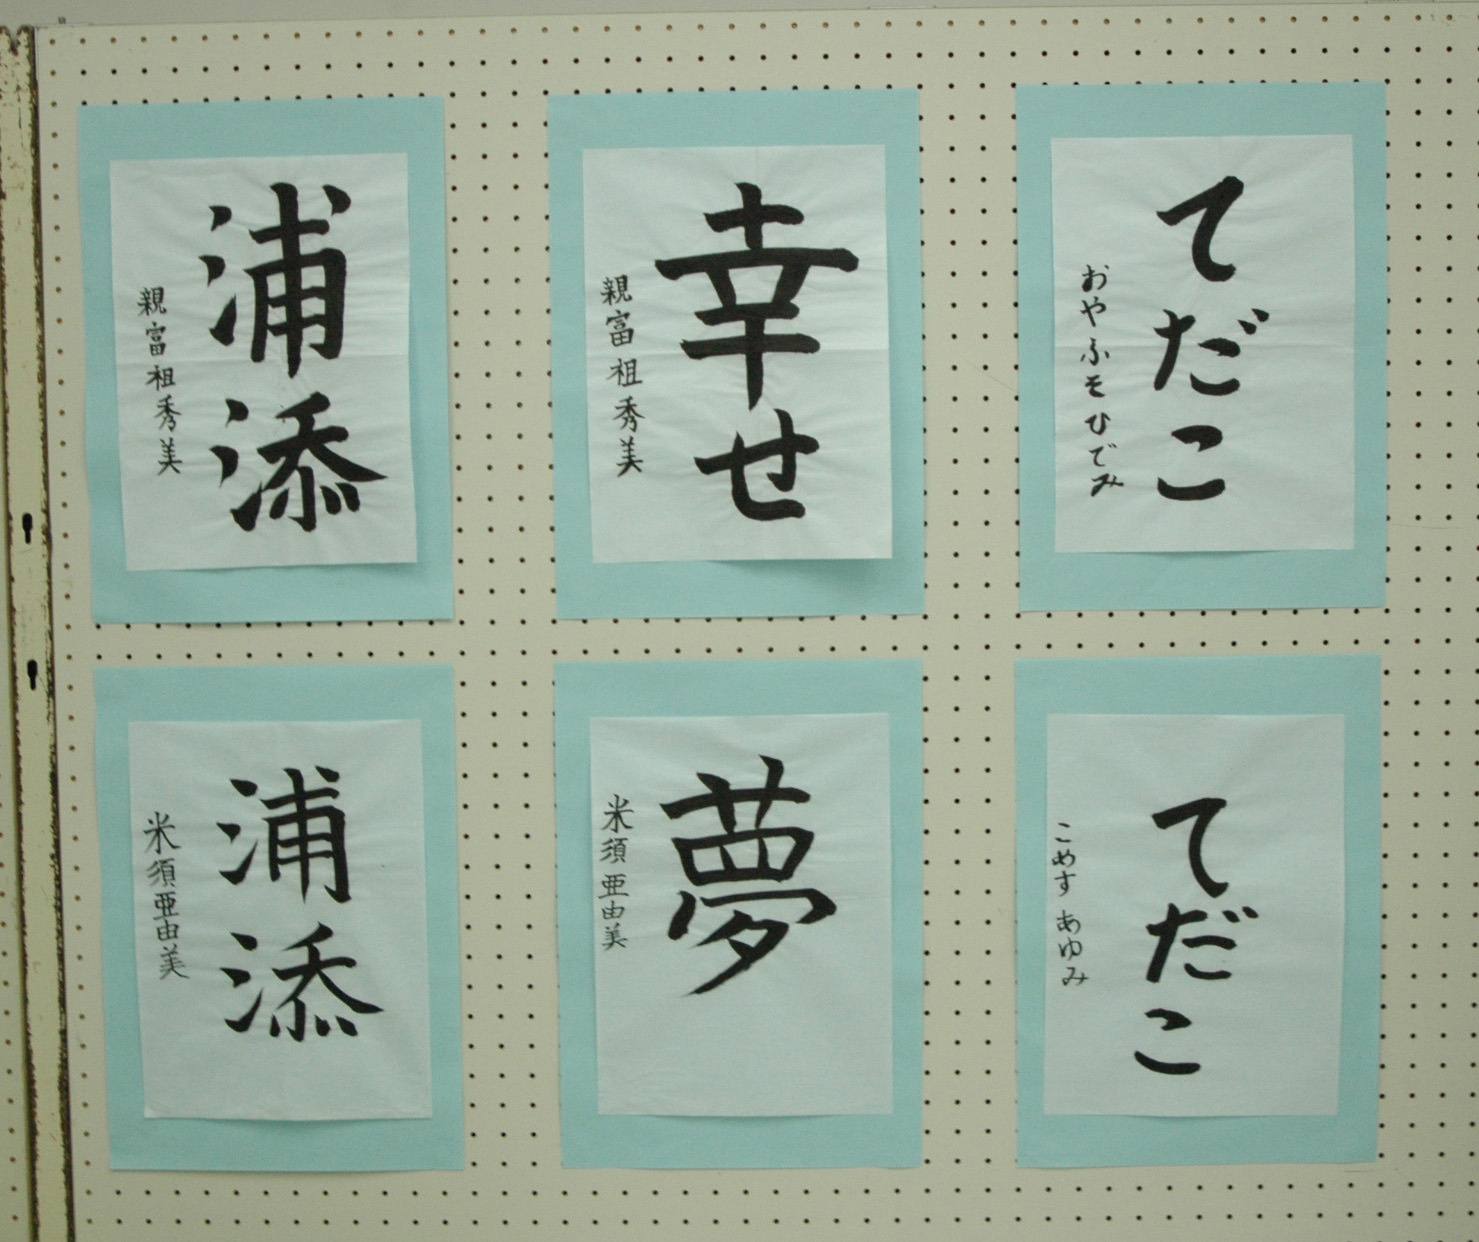 浦添
親富祖秀美
幸せ
親富祖秀美
てだこ
おやふそひでみ
浦添
米須亜由美
夢
米須亜由美
てだこ
こめす あゆみ